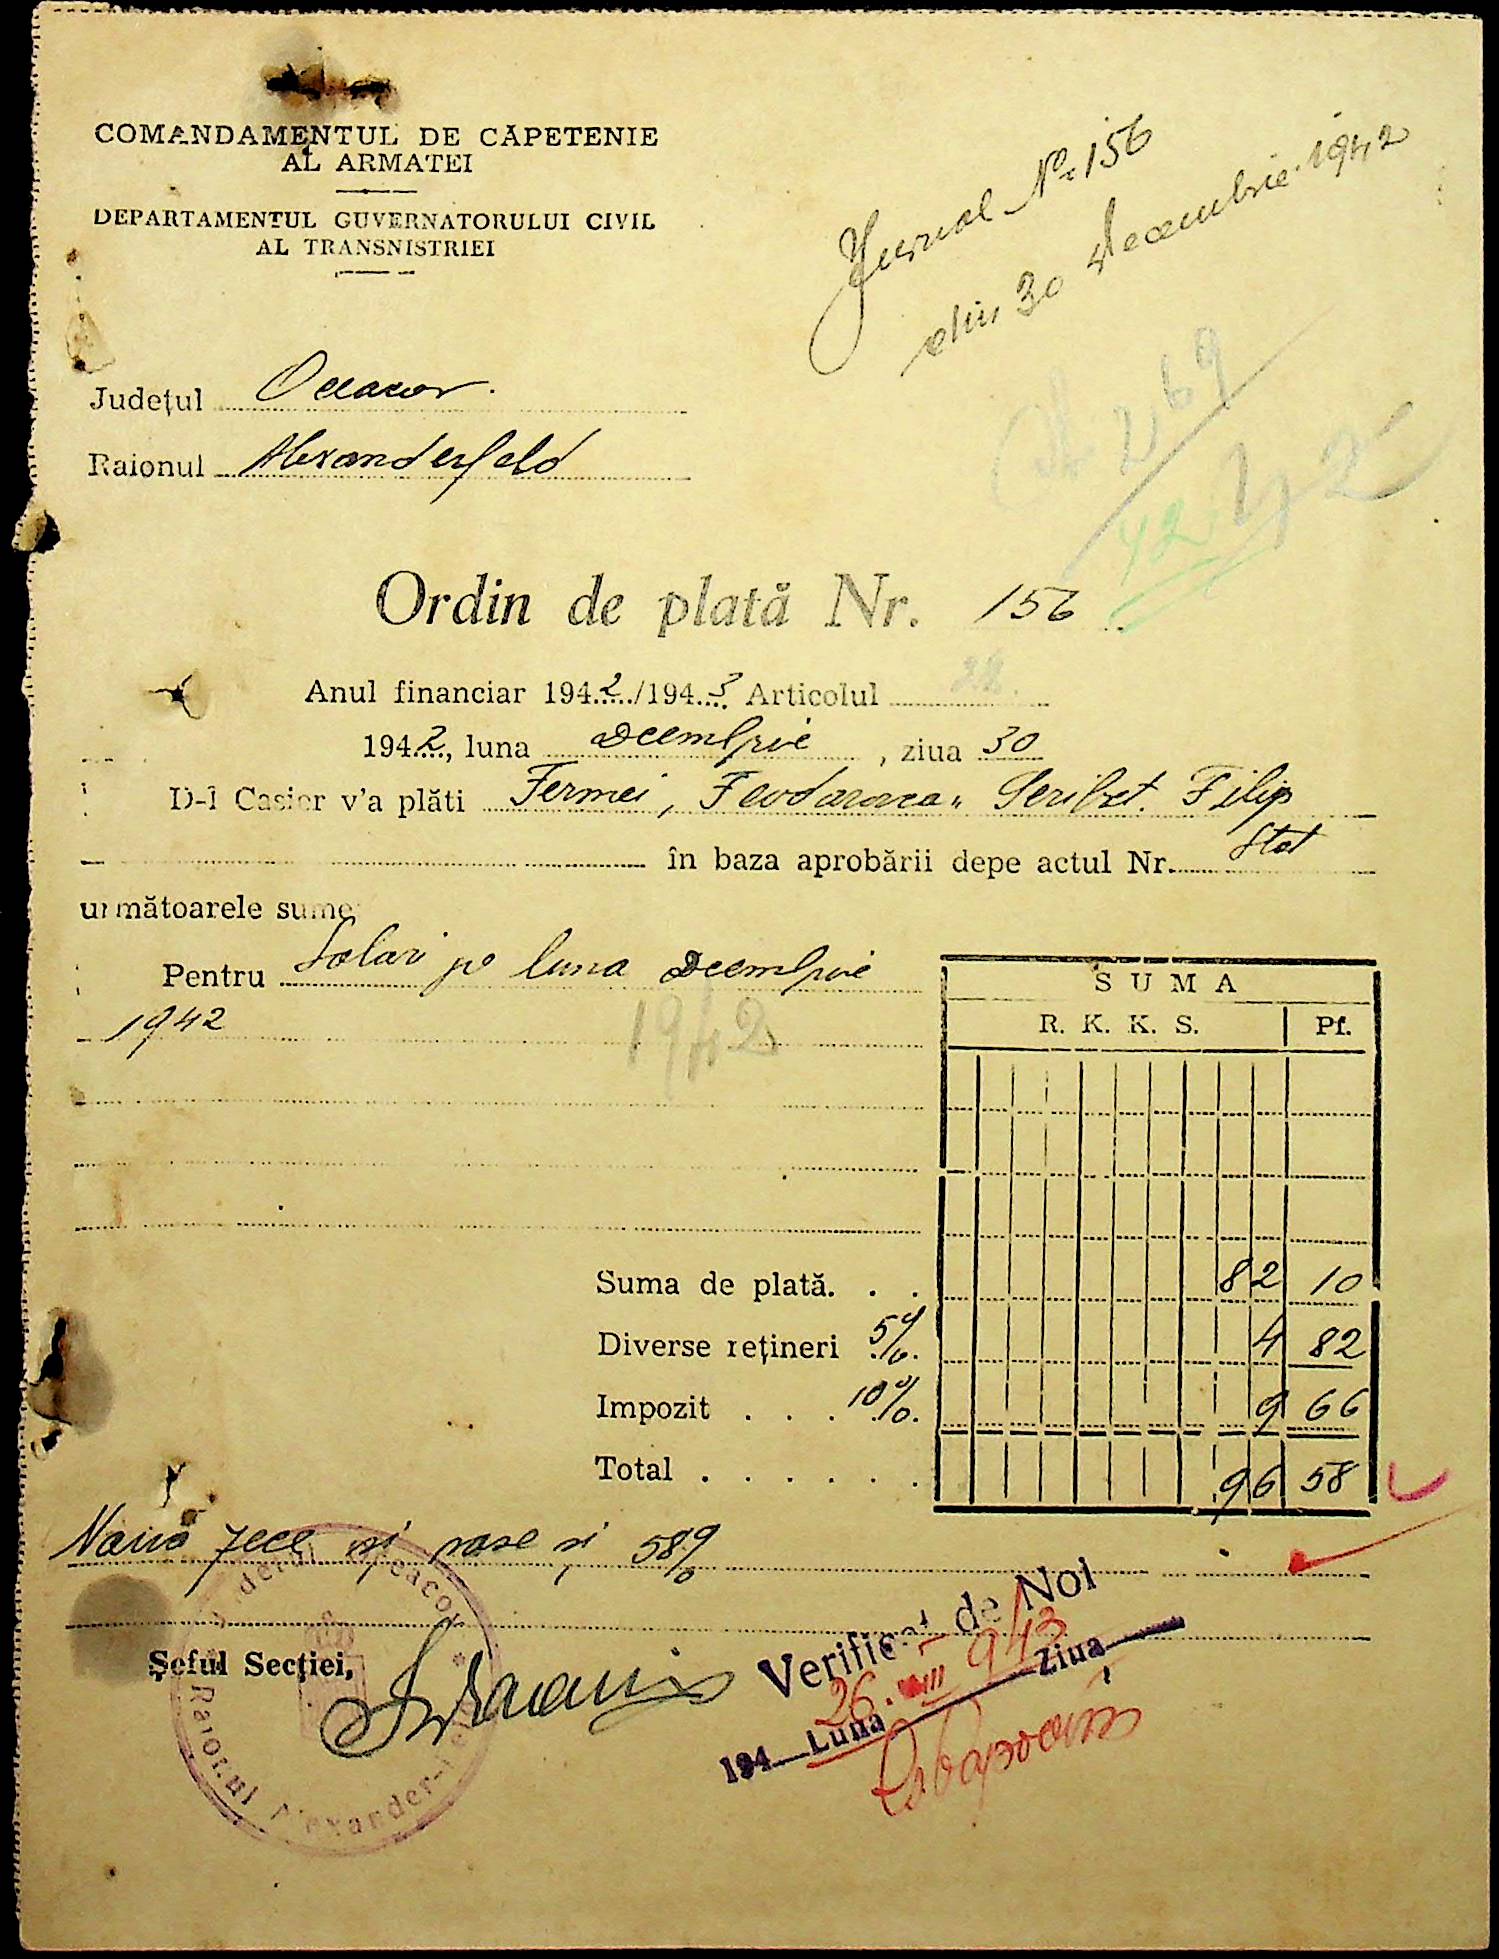 COMANDAMENTUL DE CĂPETENIE
AL ARMATEI
DEPARTAMENTUL GUVERNATORULUI CIVIL
AL TRANSNISTRIEI
Jurnal No. 156
din 30 Decembrie 1942
Județul Oceacov.
Raionul Alexanderfeld
269
42
42
Ordin de plată Nr. 156
Anul financiar 1942/1943 Articolul 28.
1942, luna Decembrie, ziua 30
D-l Casier v'a plăti Fermei, Feodorovca" Scribet. Filip
în baza aprobării depe actul Nr. Stat
următoarele sume
Pentru Salari pe luna Decembrie
1942
1942
SUMA
R. K. K. S. Pf.
Suma de plată. . . 82 10
Diverse rețineri 5% 4 82
Impozit . . . 10% 9 66
Total . . . . . . 96 58
Nouă zece și șase și 58%
Șeful Secției,
Județul Oceacov
Raionul Alexander-feld
Verificat de Noi
26. VIII 943
194 Luna Ziua